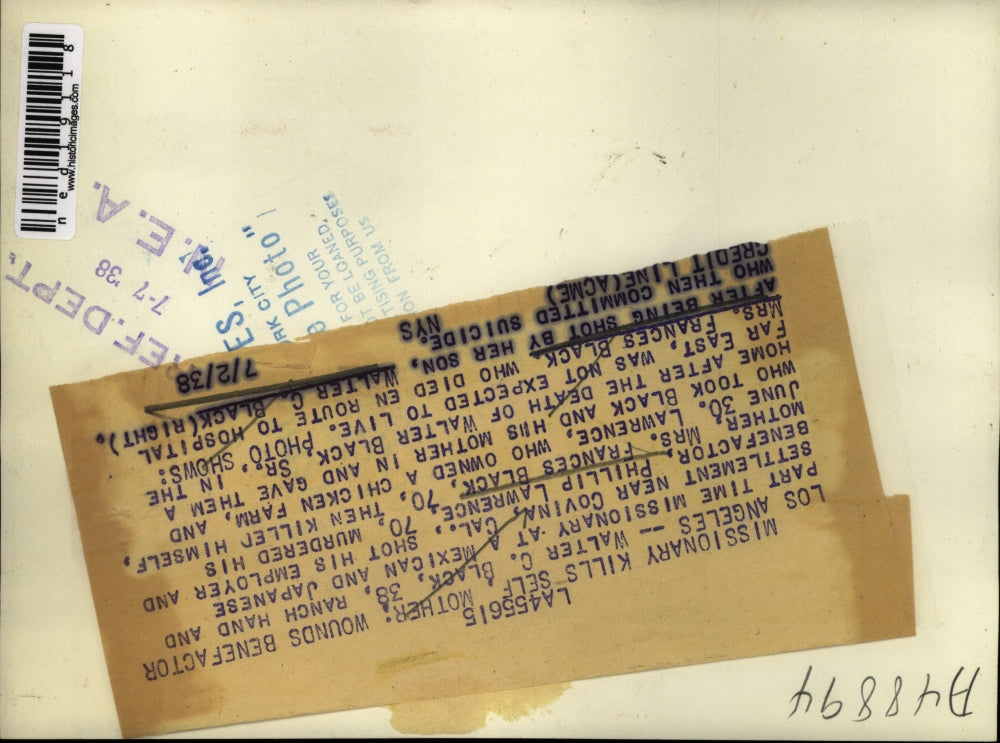 LA455615
MISSIONARY KILLS SELF, MOTHER: WOUNDS BENEFACTOR
LOS ANGELES -- WALTER C. BLACK, 38, RANCH HAND AND
PART TIME MISSIONARY AT A MEXICAN AND JAPANESE
SETTLEMENT NEAR COVINA, CAL. SHOT HIS EMPLOYER AND
BENEFACTOR, PHILLIP LAWRENCE, 70, MURDERED HIS
MOTHER, MRS. FRANCES BLACK, 70, THEN KILLED HIMSELF,
JUNE 30. LAWRENCE, WHO OWNED A CHICKEN FARM, AND
WHO TOOK BLACK AND HIS MOTHER IN AND GAVE THEM A
HOME AFTER THE DEATH OF WALTER BLACK, SR. IN THE
FAR EAST, WAS NOT EXPECTED TO LIVE. PHOTO SHOWS:
MRS. FRANCES BLACK, WHO DIED EN ROUTE TO HOSPITAL
AFTER BEING SHOT BY HER SON, WALTER C. BLACK(RIGHT),
WHO THEN COMMITTED SUICIDE.
CREDIT LINE(ACME) NYS 7/2/38
A48894
REF. DEPT.
7-7 '38
N. E. A.
ES, Inc.
RK CITY
Photo"
FOR YOUR
BE LOANED
TISING PURPOSES
ON FROM US
ned19118
www.historicimages.com